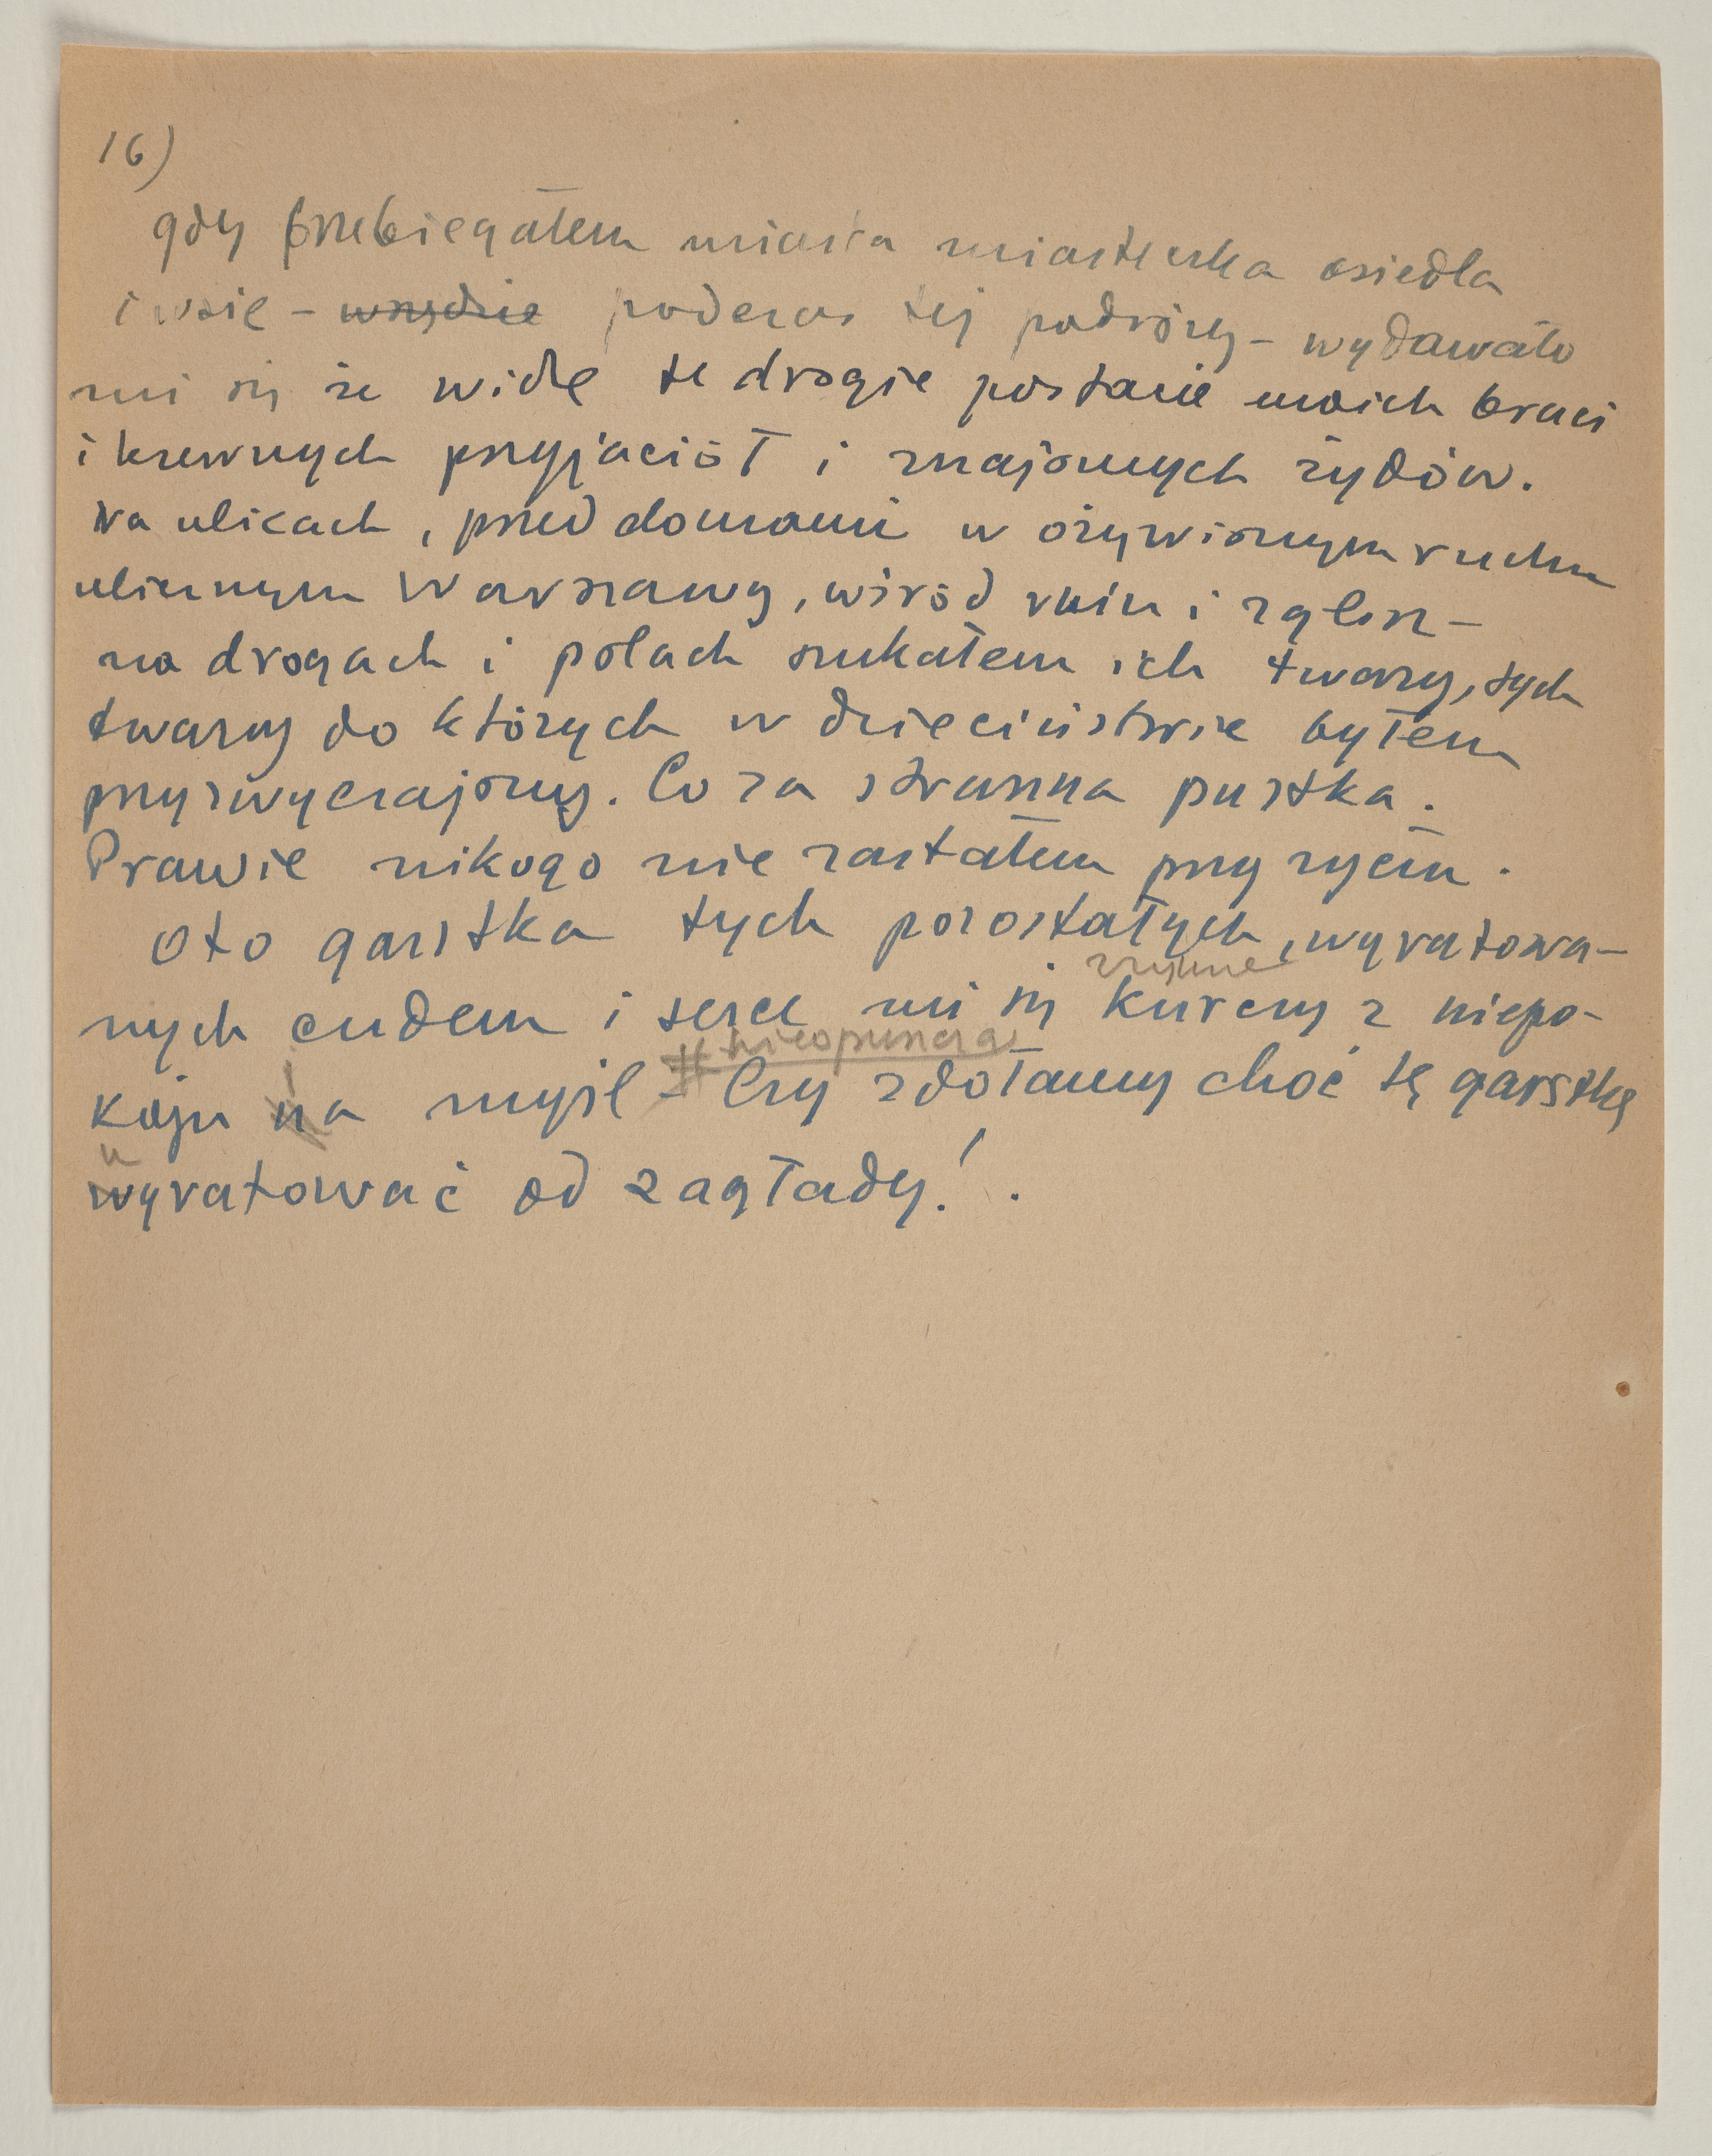 16)
gdy przebiegałem miasta miasteczka osiedla
i wsie – wszędzie podczas tej podróży – wydawało
mi się że widzę te drogie postacie moich braci
i krewnych przyjaciół i znajomych żydów.
Na ulicach, przed domami w ożywionym ruchu
ulicznym Warszawy, wśród ruin i zglisz–
na drogach i polach szukałem ich twarzy, tych
twarzy do których w dzieciństwie byłem
przyzwyczajony. Co za straszna pustka.
Prawie nikogo nie zastałem przy życiu.
Oto garstka tych pozostałych, wyratowa–
nych cudem i serce mi się kurczy z niepo–
nieopuszcza
koju na myśl – Czy zdołamy choć tę garstkę
u
wyratować od zagłady! .